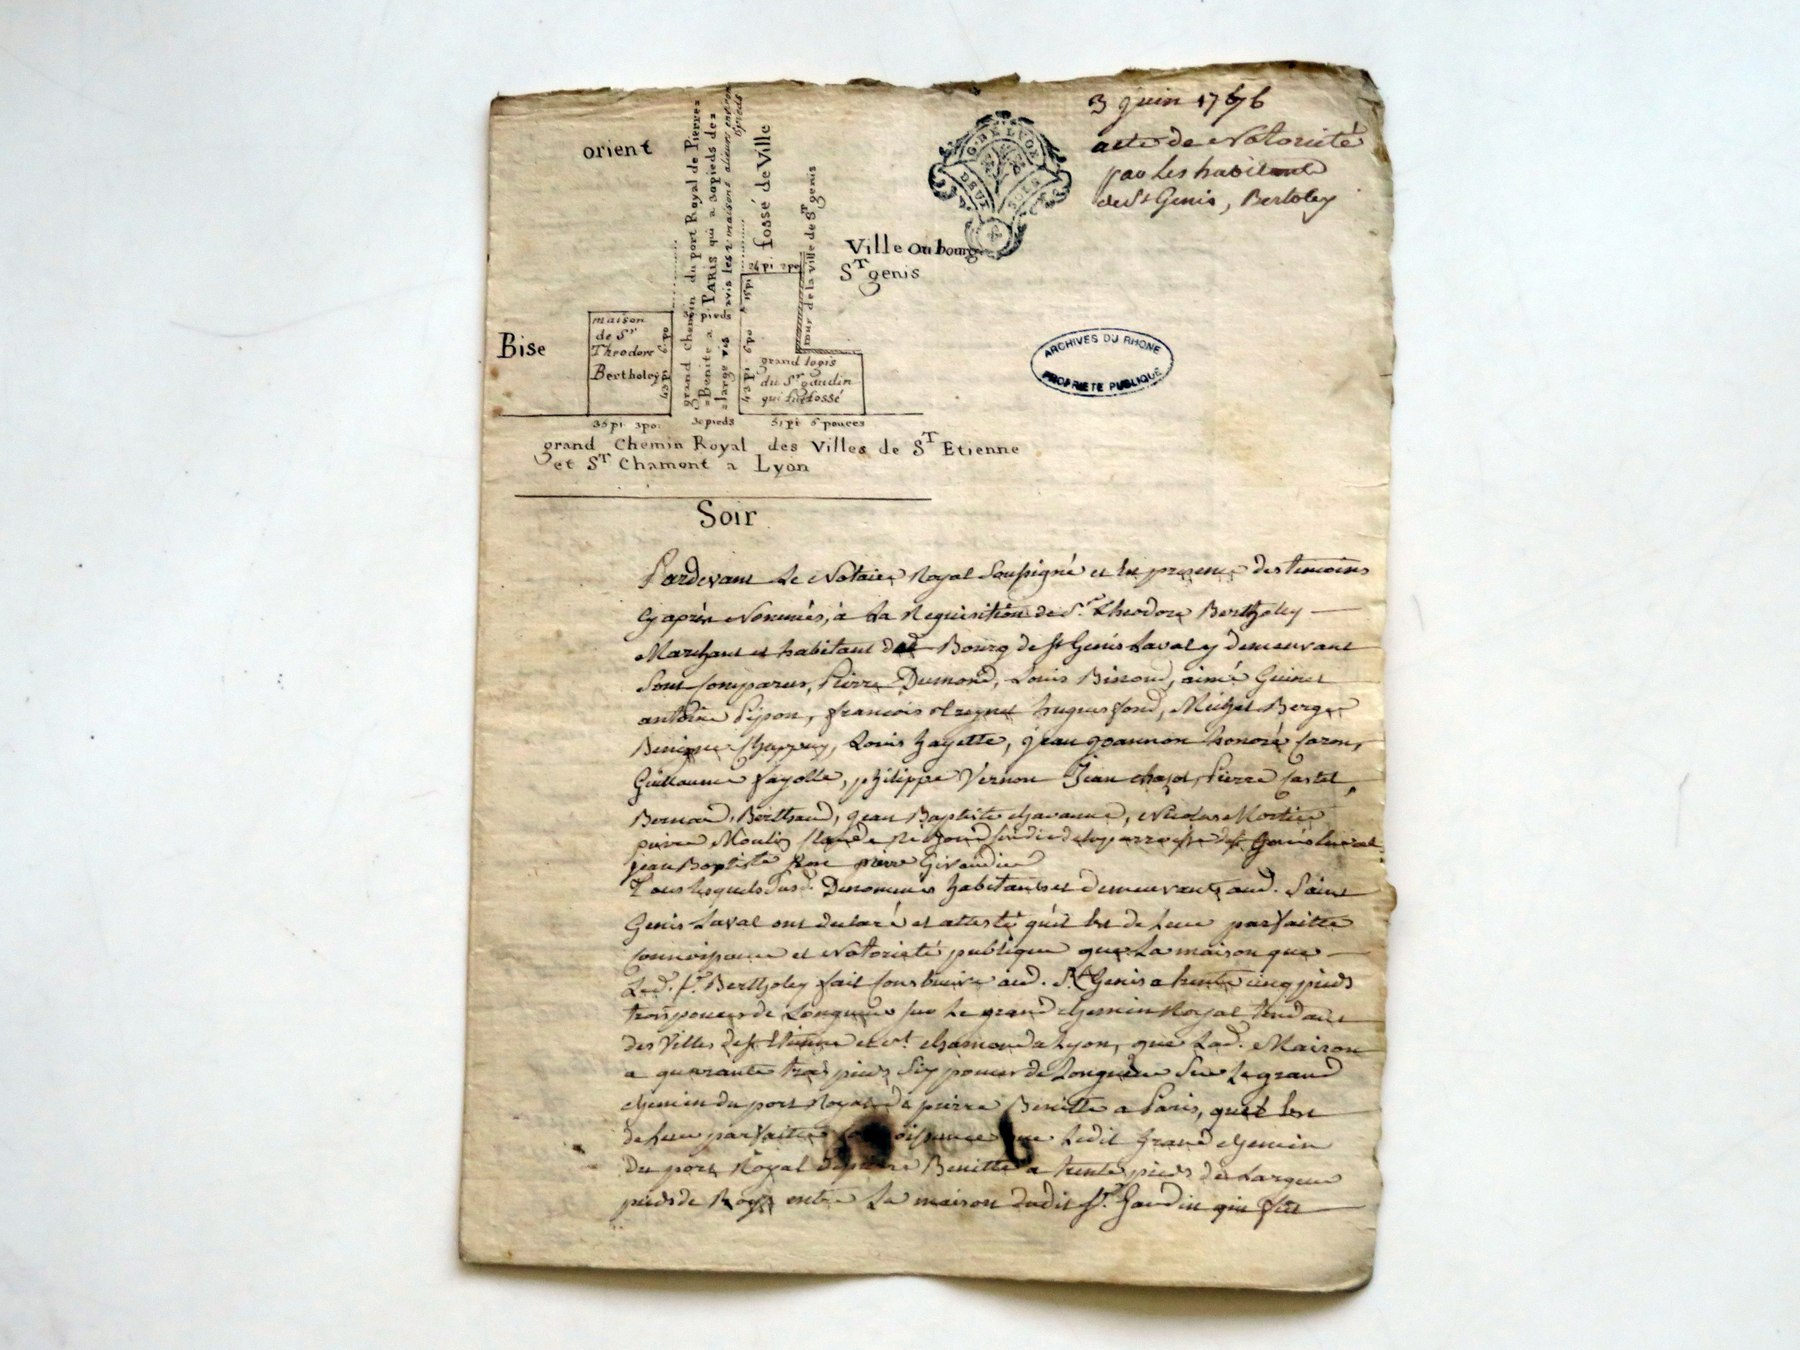 3 juin 1766
acte de Notorieté
par les habitants
de St Genis, Bertoley
GNE LYON
DEUX SOLS
ARCHIVES DU RHONE
PROPRIETE PUBLIQUE
orient
grand chemin du port Royal de Pierre
Benite a PARIS qui a 30 pieds de
large vis avis les 2 maisons
fossé de Ville
mur de la ville de ST genis
Ville ou bourg
ST genis
Bise
maison
de Sr
Theodore
Bertholey
43 pi 6 po
30 pieds
24 pi 2 po
15 pi
43 pi 6 po
grand logis
du Sr gaudin
qui fut fossé
35 pi 3 po
30 pieds
51 pi 6 pouces
grand Chemin Royal des Villes de ST Etienne
et ST Chamont a Lyon
Soir
Pardevant Le Notaire Royal Soussigné et En presence des temoins
Cy après Nommés, à La Requisition de Sr Theodore Bertholey
Marchant et habitant Bourg de St Genis Laval y demeurant
Sont Comparus, Pierre Dumond, Louis Bissoud, aimé Guinet
antoine Pipon, francois hugues fond, Michel Berger
Benigne Chappuy, Louis hayette, jean joannon honoré Caron,
Guillaume fayolle, philippe Vernon Jean chazot, Pierre Castel,
Bernard Berthaud, jean Baptiste chavanne, Nicolas Mortier
pierre Moulin Sindic de la parroisse de St Genis Laval
jean Baptiste pierre Giraudier
Tous lesquels susd. Denommés habitants et demeurants aud. Saint
Genis Laval ont declaré et attesté qu'il Est de Leur parfaitte
Connoissance et Notorieté publique que La maison que
Led. Sr. Bertholey fait Construire aud. St Genis a trente cinq pieds
trois pouces de Longueur sur Le grand chemin Royal tendant
des Villes de St Etienne et St chamond a Lyon, que Lad. Maison
a quarante trois pieds Six pouces de Longueur Sur Le grand
chemin du port Royal de pierre Benitte a Paris, qu'il Est
de Leur parfaitte connoissance que Ledit grand chemin
Du port Royal de pierre Benitte a trente pieds de Largeur
pieds de Roy entre La maison dudit Sr. Gaudin qui fut